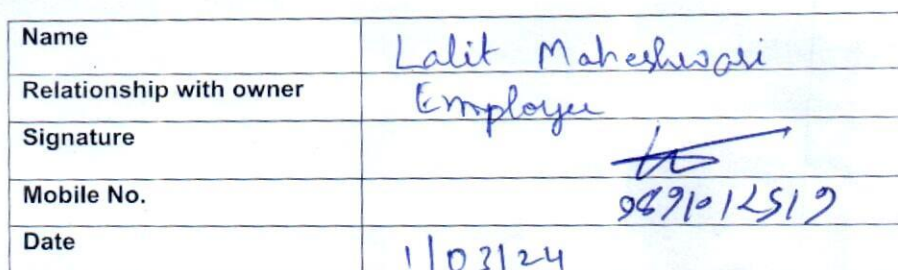 Name Lalit Maheshwari
Relationship with owner Employee
Signature
Mobile No. 9891012519
Date 1/03/24